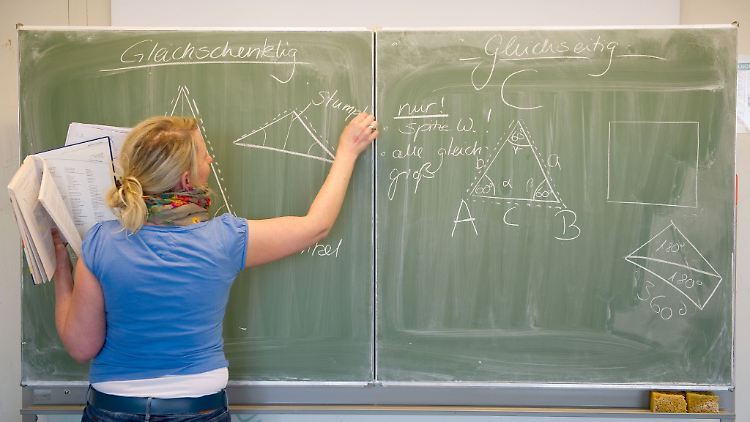 Gleichschenklig
Stumpf
Gleichseitig
C
nur!
spitze W.!
alle gleich
groß
60°
γ
b
a
60°
α
β
60°
A
C
B
180°
180°
360°